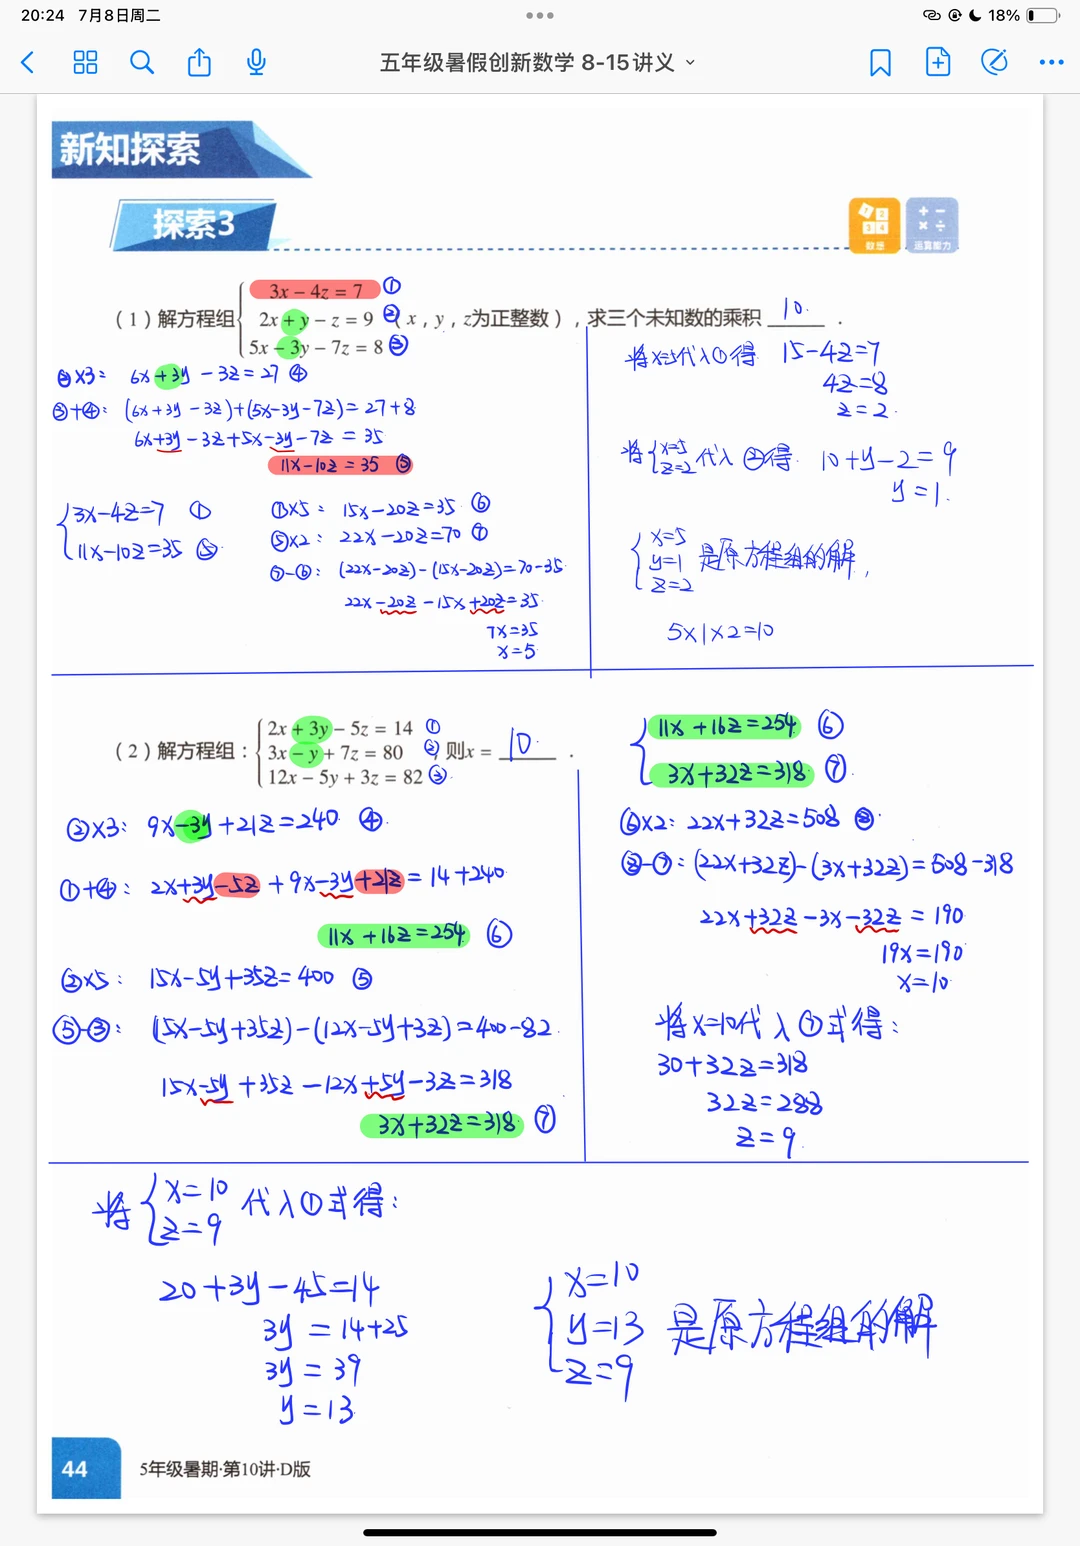 20:24 7月8日周二
18%
五年级暑假创新数学 8-15讲义
新知探索
探索3
数感
运算能力
3x − 4z = 7 ①
（1）解方程组 2x + y − z = 9 ②（x，y，z为正整数），求三个未知数的乘积 10 .
5x − 3y − 7z = 8 ③
②×3: 6x+3y−3z=27 ④
③+④: (6x+3y−3z)+(5x−3y−7z)=27+8
6x+3y−3z+5x−3y−7z=35
11x−10z=35 ⑤
3x−4z=7 ①
11x−10z=35 ⑤
①×5: 15x−20z=35 ⑥
⑤×2: 22x−20z=70 ⑦
⑦−⑥: (22x−20z)−(15x−20z)=70−35
22x−20z−15x+20z=35
7x=35
x=5
将x=5代入①得 15−4z=7
4z=8
z=2.
将 x=5 z=2 代入②得. 10+y−2=9
y=1.
x=5
y=1 是原方程组的解,
z=2
5×1×2=10
2x + 3y − 5z = 14 ①
（2）解方程组： 3x − y + 7z = 80 ② 则x = 10. .
12x − 5y + 3z = 82 ③
②×3: 9x−3y+21z=240 ④
①+④: 2x+3y−5z+9x−3y+21z=14+240
11x+16z=254 ⑥
②×5: 15x−5y+35z=400 ⑤
⑤−③: (15x−5y+35z)−(12x−5y+3z)=400−82
15x−5y+35z−12x+5y−3z=318
3x+32z=318 ⑦
11x+16z=254 ⑥
3x+32z=318 ⑦
⑥×2: 22x+32z=508 ⑧
⑧−⑦: (22x+32z)−(3x+32z)=508−318
22x+32z−3x−32z=190
19x=190
x=10
将x=10代入⑦式得:
30+32z=318
32z=288
z=9.
将 x=10 z=9 代入①式得:
20+3y−45=14
3y=14+25
3y=39
y=13
x=10
y=13 是原方程组的解
z=9
44 5年级暑期·第10讲·D版